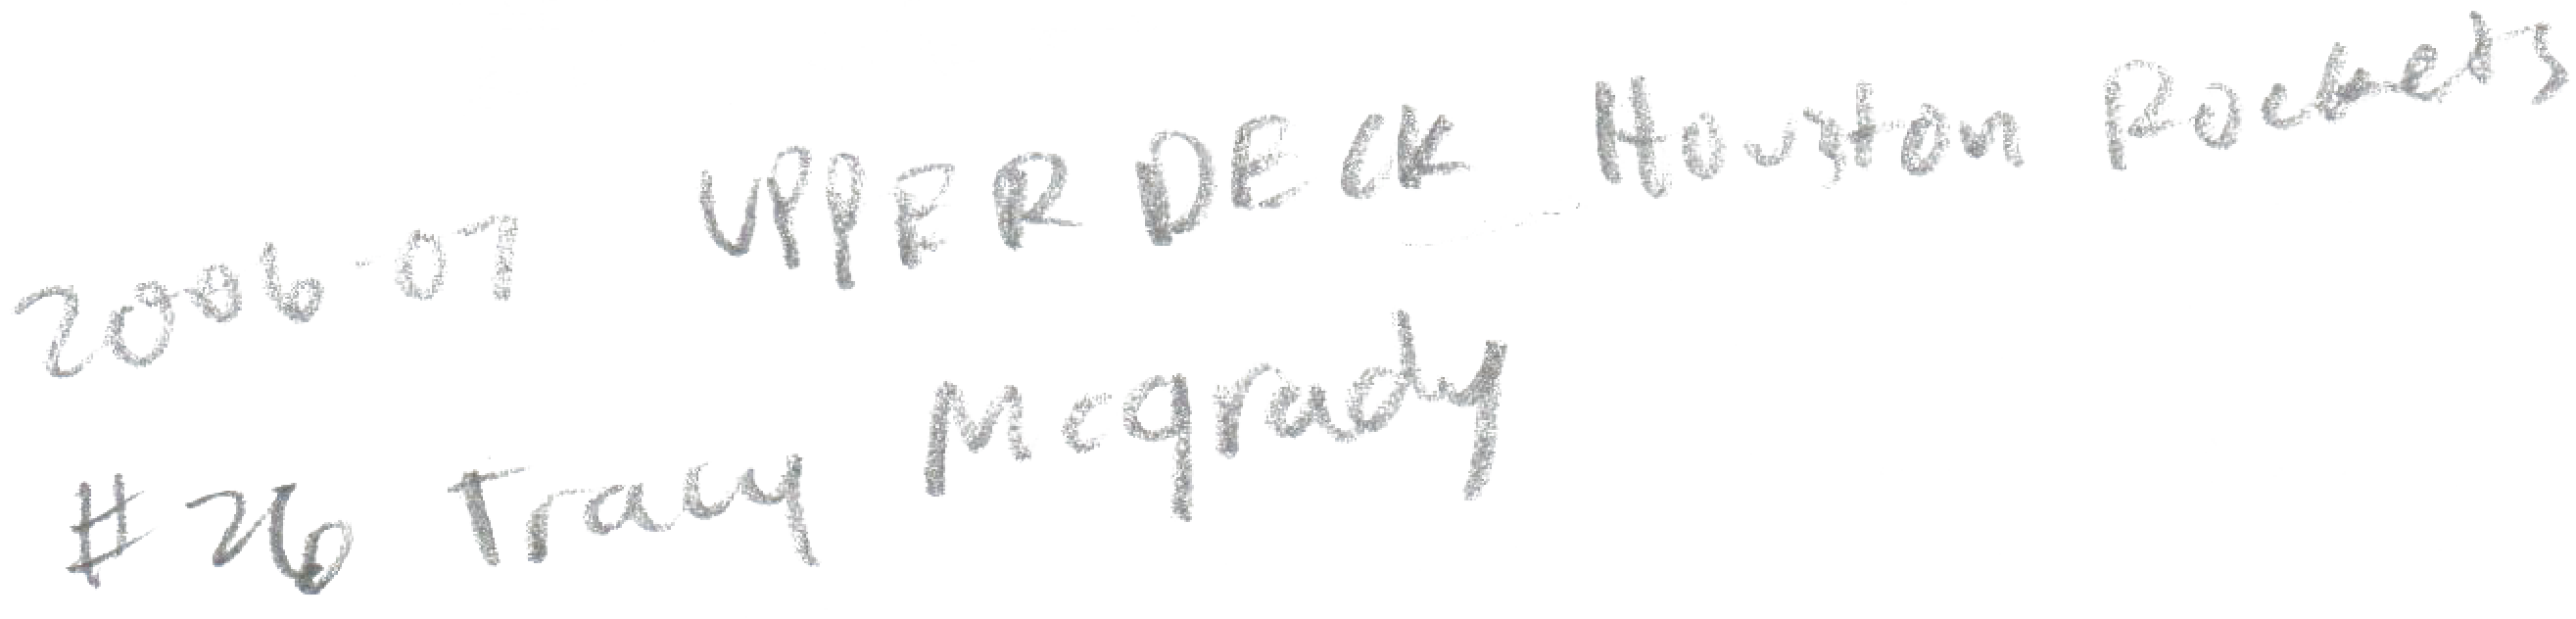 2006-07 UPPER DECK Houston Rockets
#26 Tracy Mcgrady